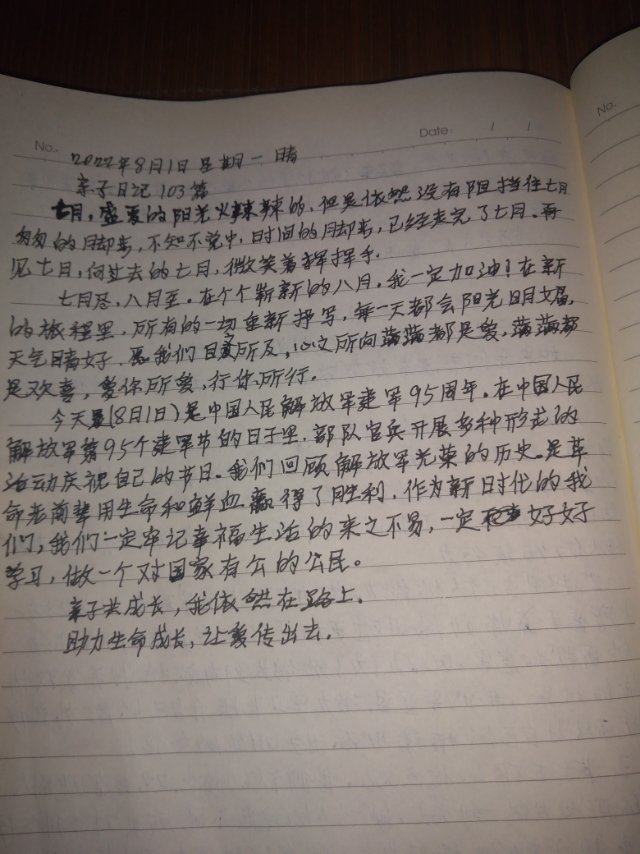 No.
Date: / /
No.
2022年8月1日 星期一 晴
亲子日记103篇
七月,盛夏的阳光火辣辣的,但是依然没有阻挡住七月
匆匆的脚步,不知不觉中,时间的脚步,已经走完了七月。再
见七月,向过去的七月,微笑着挥挥手。
七月尽,八月至。在个个崭新的八月,我一定加油!在新
的旅程里,所有的一切重新抒写,每一天都会阳光明媚,
天气晴好,愿我们目之所及,心之所向满满都是爱,满满都
是欢喜,爱你所爱,行你所行。
今天是(8月1日)是中国人民解放军建军95周年。在中国人民
解放军第95个建军节的日子里,部队官兵开展多种形式的
活动庆祝自己的节日。我们回顾解放军光荣的历史。是革
命老前辈用生命和鲜血赢得了胜利,作为新时代的我
们,我们一定牢记幸福生活的来之不易,一定 好好
学习,做一个对国家有公的公民。
亲子共成长,我依然在路上。
助力生命成长,让爱传出去。